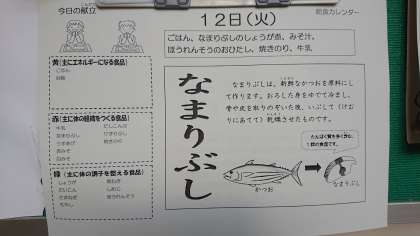 今日の献立
給食カレンダー
12日(火)
ごはん、なまりぶしのしょうが煮、みそ汁、
ほうれんそうのおひたし、焼きのり、牛乳
黄(主にエネルギーになる食品)
ごはん
砂糖
赤(主に体の組織をつくる食品)
牛乳
なまりぶし
焼きのり
緑(主に体の調子を整える食品)
しょうが
だいこん
たまねぎ
もやし
長ねぎ
しめじ
ほうれんそう
なまりぶし
なまりぶしは、新鮮なかつおを原料にし
て作ります。おろした身をゆでて冷まし、
骨や皮を取りのぞいた後、いぶして(けむ
りにあてて)乾燥させたものです。
たんぱく質を多く含む、
1群の食品です。
かつお
なまりぶし